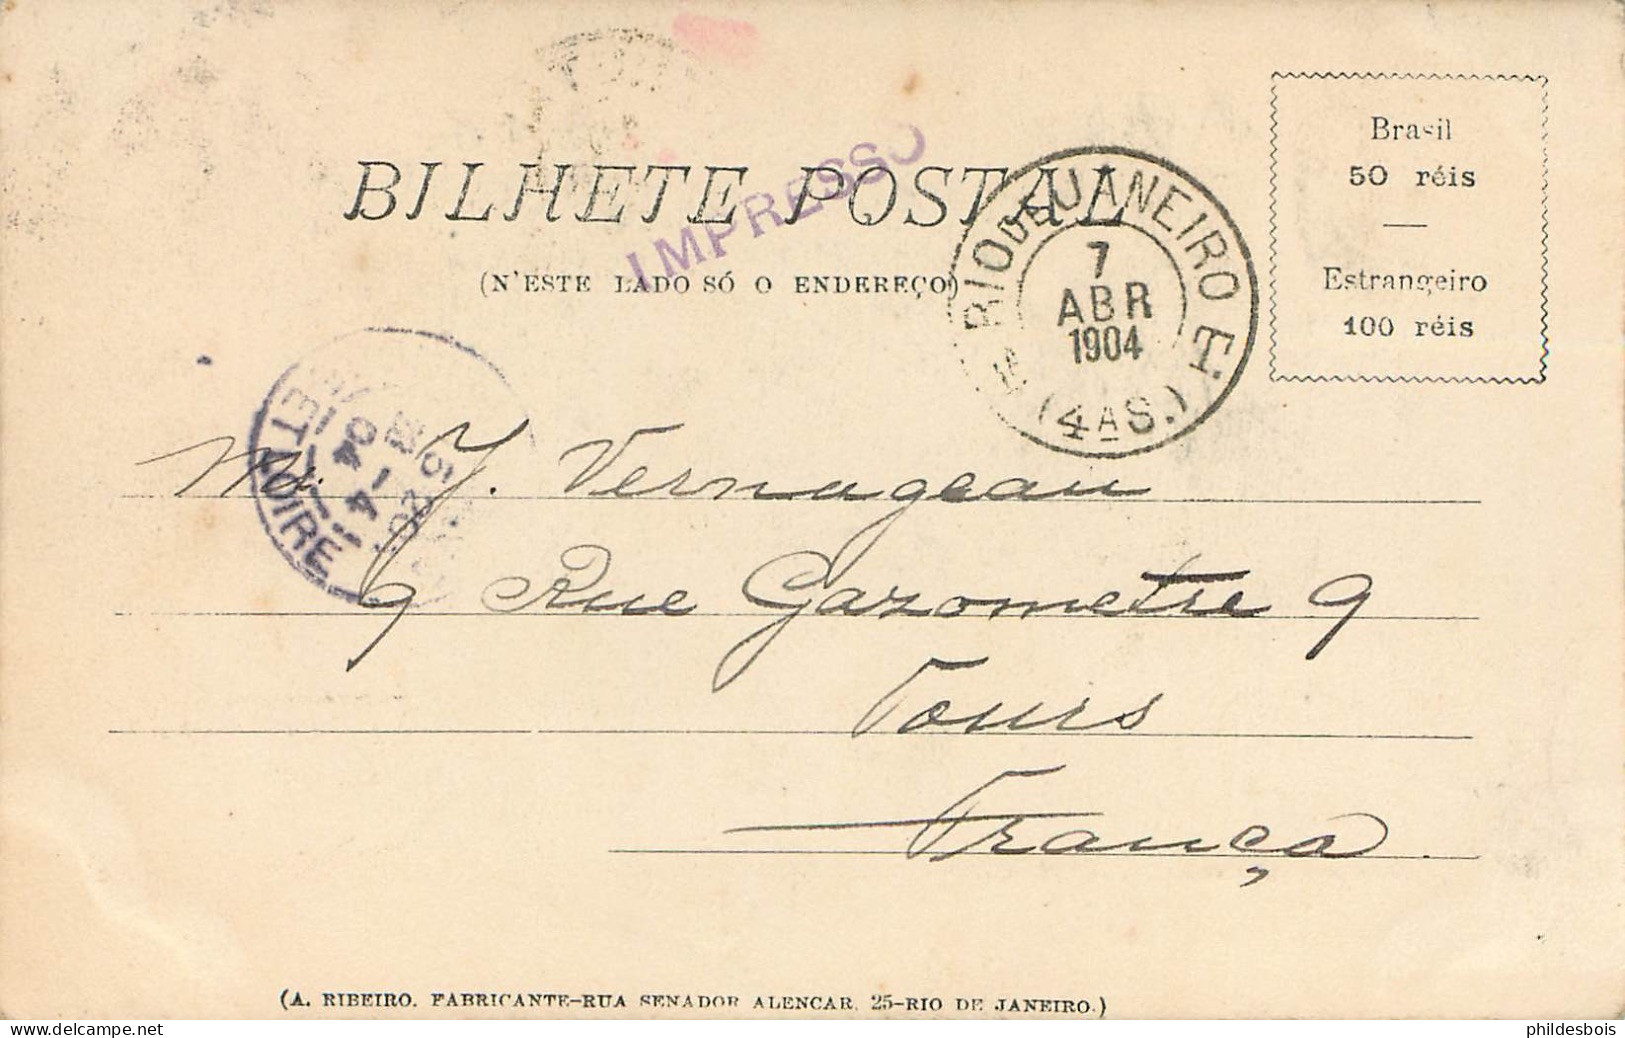 BILHETE POSTAL
IMPRESSO
(N'ESTE LADO SÓ O ENDEREÇO)
RIO DE JANEIRO
7
ABR
1904
(4ª S.)
Brasil
50 réis
Estrangeiro
100 réis
ET LOIRE
Mr. J. Vernageau
9 Rue Gazometre 9
Tours
França
(A. RIBEIRO. FABRICANTE-RUA SENADOR ALENCAR, 25-RIO DE JANEIRO.)
delcampe.net
phildesbois